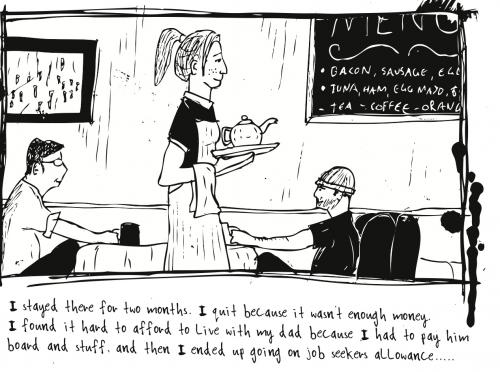 MENU
• BACON, SAUSAGE, EGG
• TUNA, HAM, EGG MAYO, &
- TEA - COFFEE - ORANG
I stayed there for two months. I quit because it wasn't enough money.
I found it hard to afford to live with my dad because I had to pay him
board and stuff. and then I ended up going on job seekers allowance.....